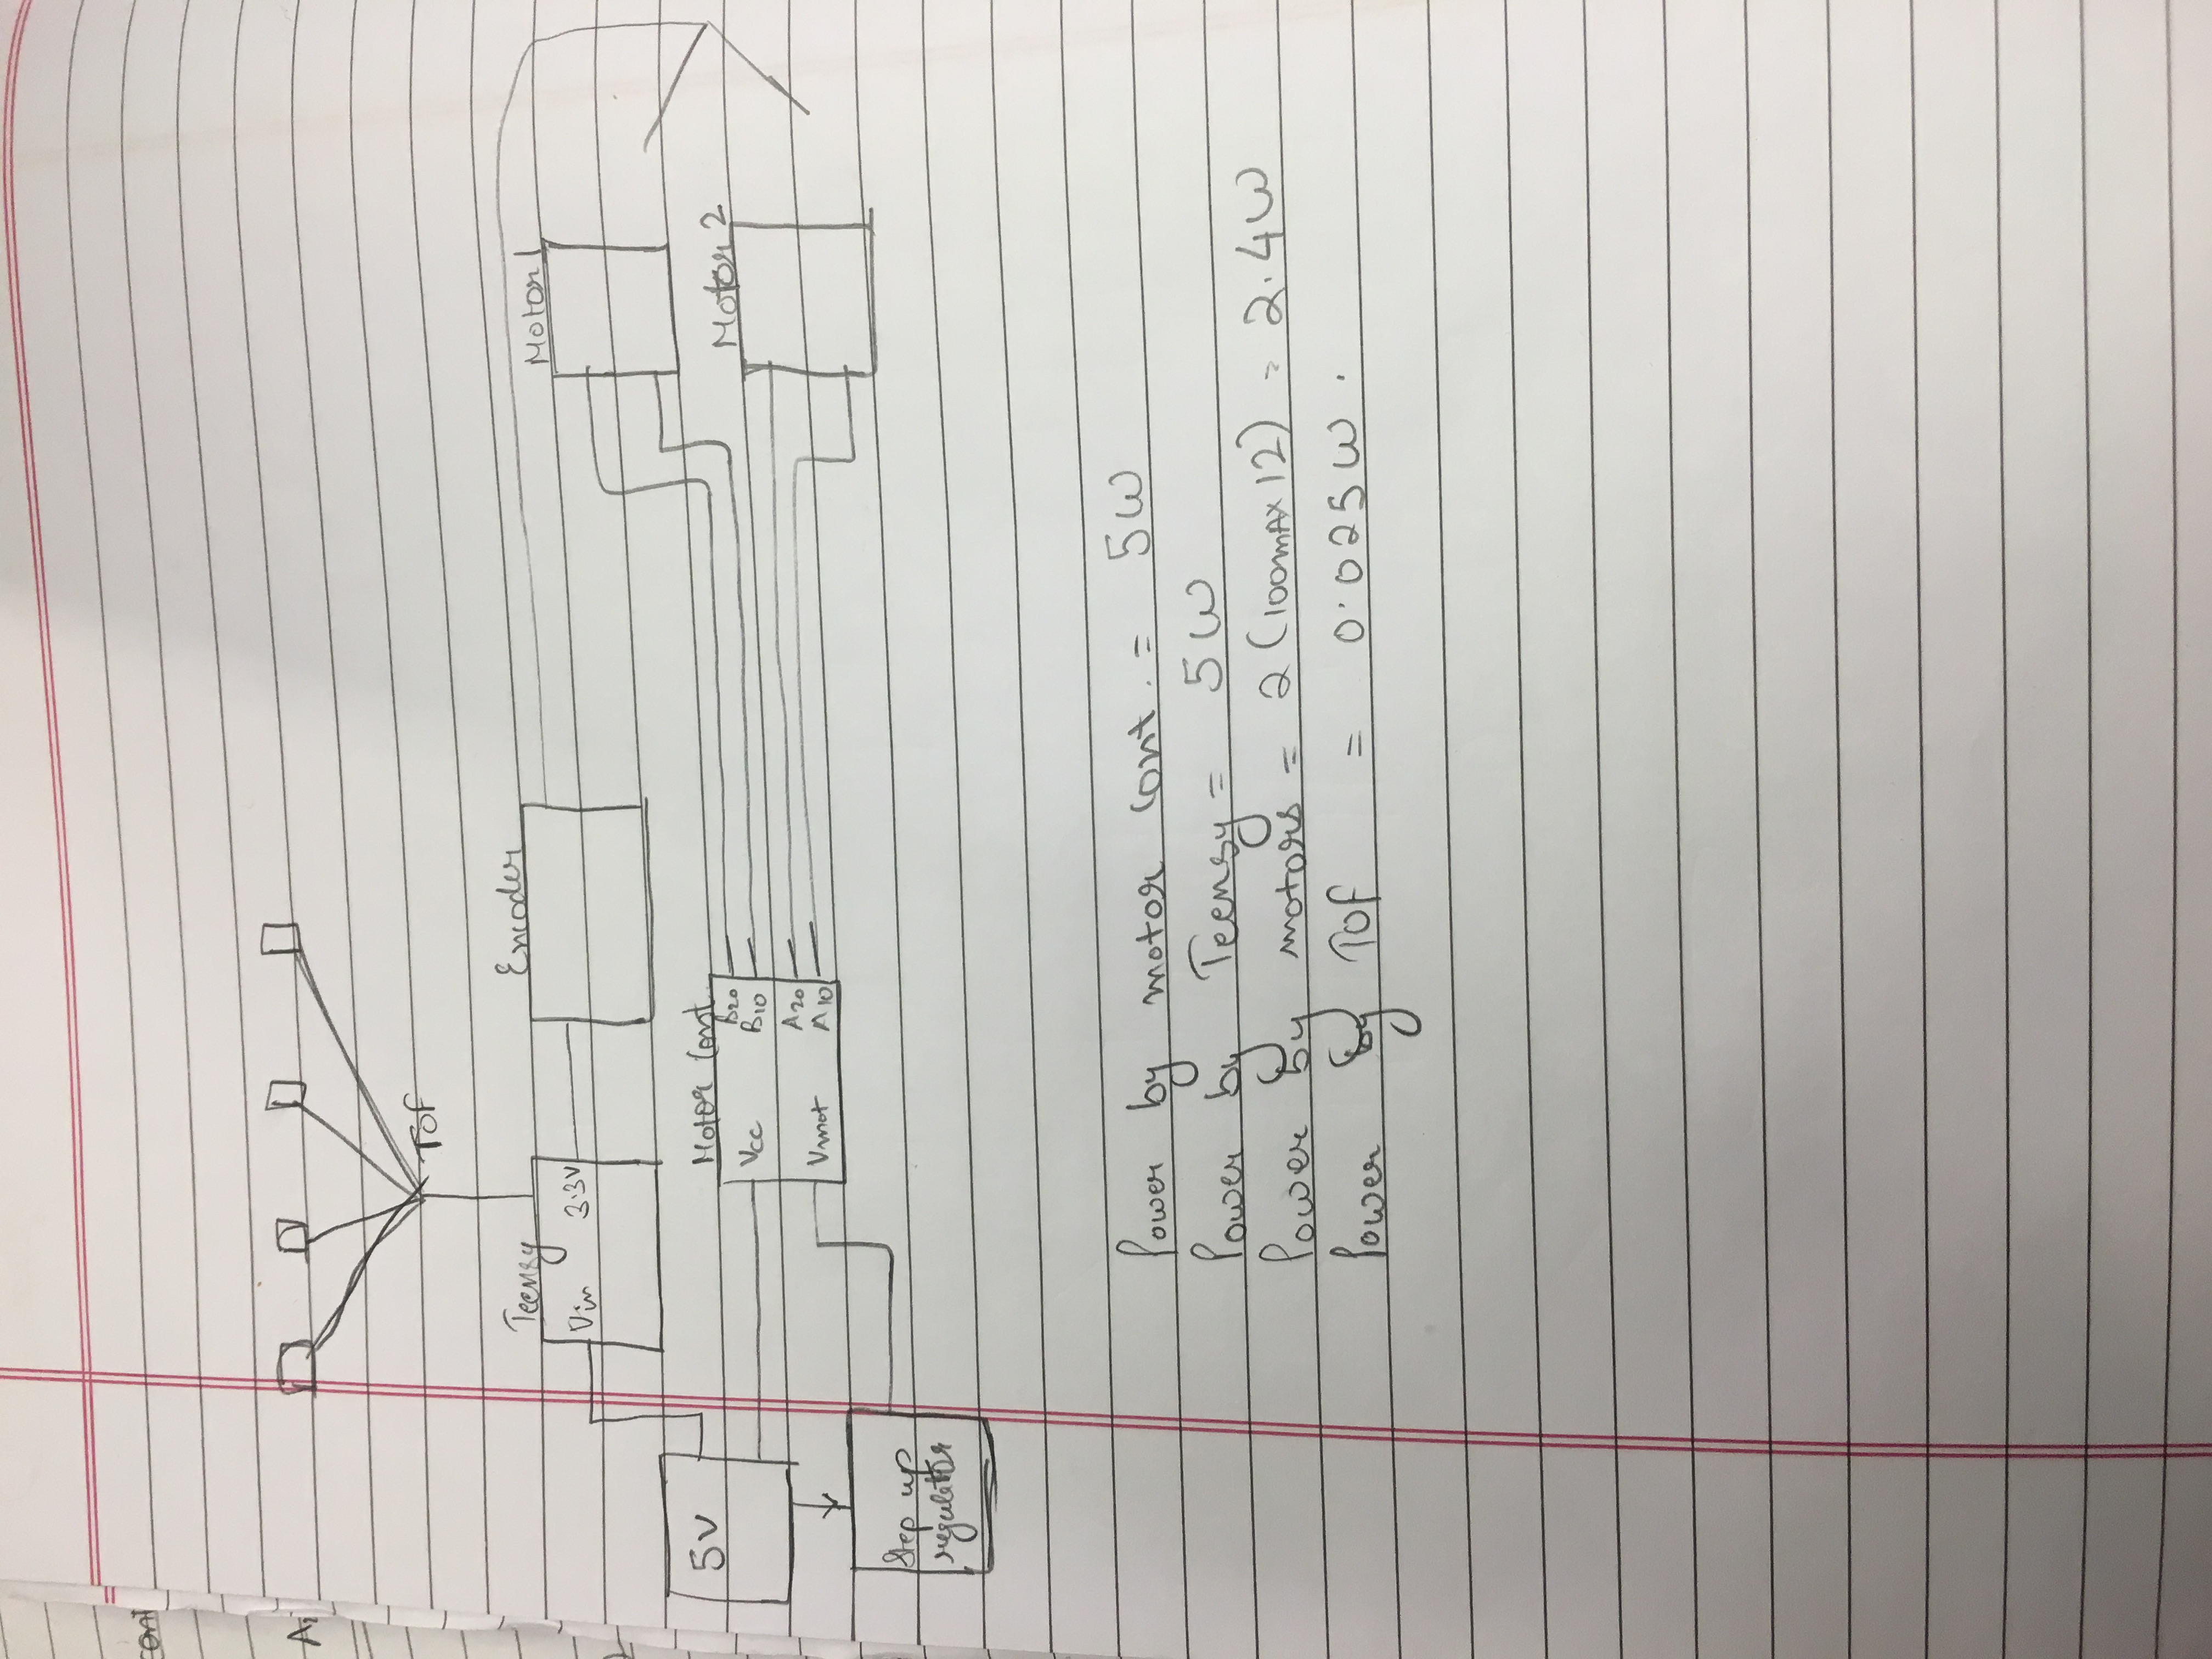 cont
A1
TOF
Teensy
Encoder
Motor 1
Vin 3.3V
5V
Motor Cont.
Motor 2
B20
Vcc B10
A20
Vmot A10
Step up
regulator
Power by motor cont. = 5W
Power by Teensy = 5W
Power by motors = 2 (100mA x 12) = 2.4W
Power by TOF = 0.025W.